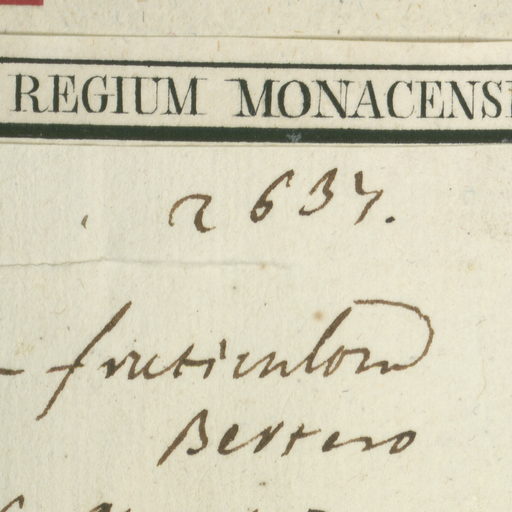 REGIUM MONACENS
2637.
- fruticulosa
Bertero